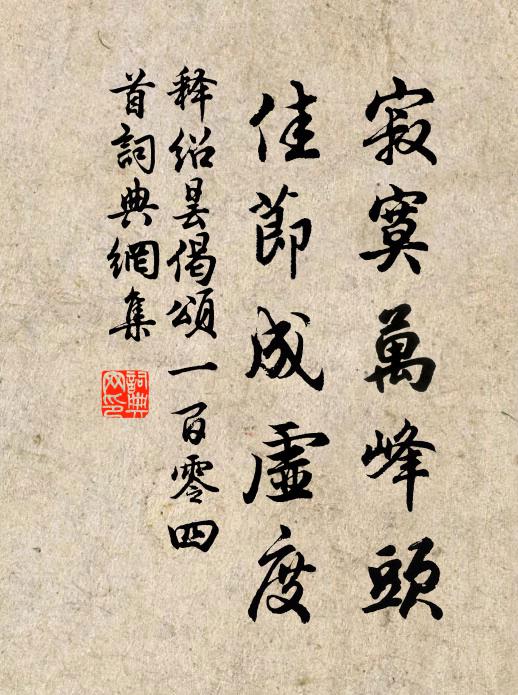 寂寞萬峰頭
佳節成虛度
释紹曇偈頌一百零四
首詞典網集
詞典
网印